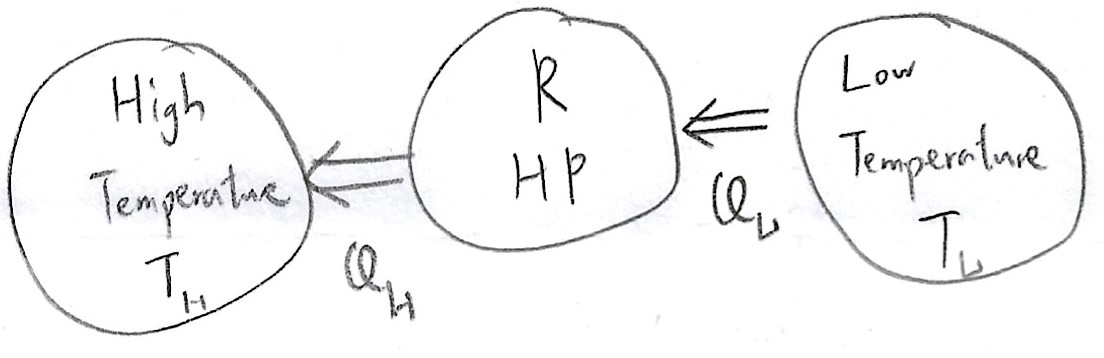 High
Temperature
T_H
Q_H
R
HP
Q_L
Low
Temperature
T_L